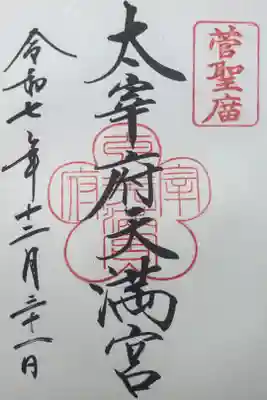 菅聖庿
太宰府天満宮
令和七年十二月三十一日